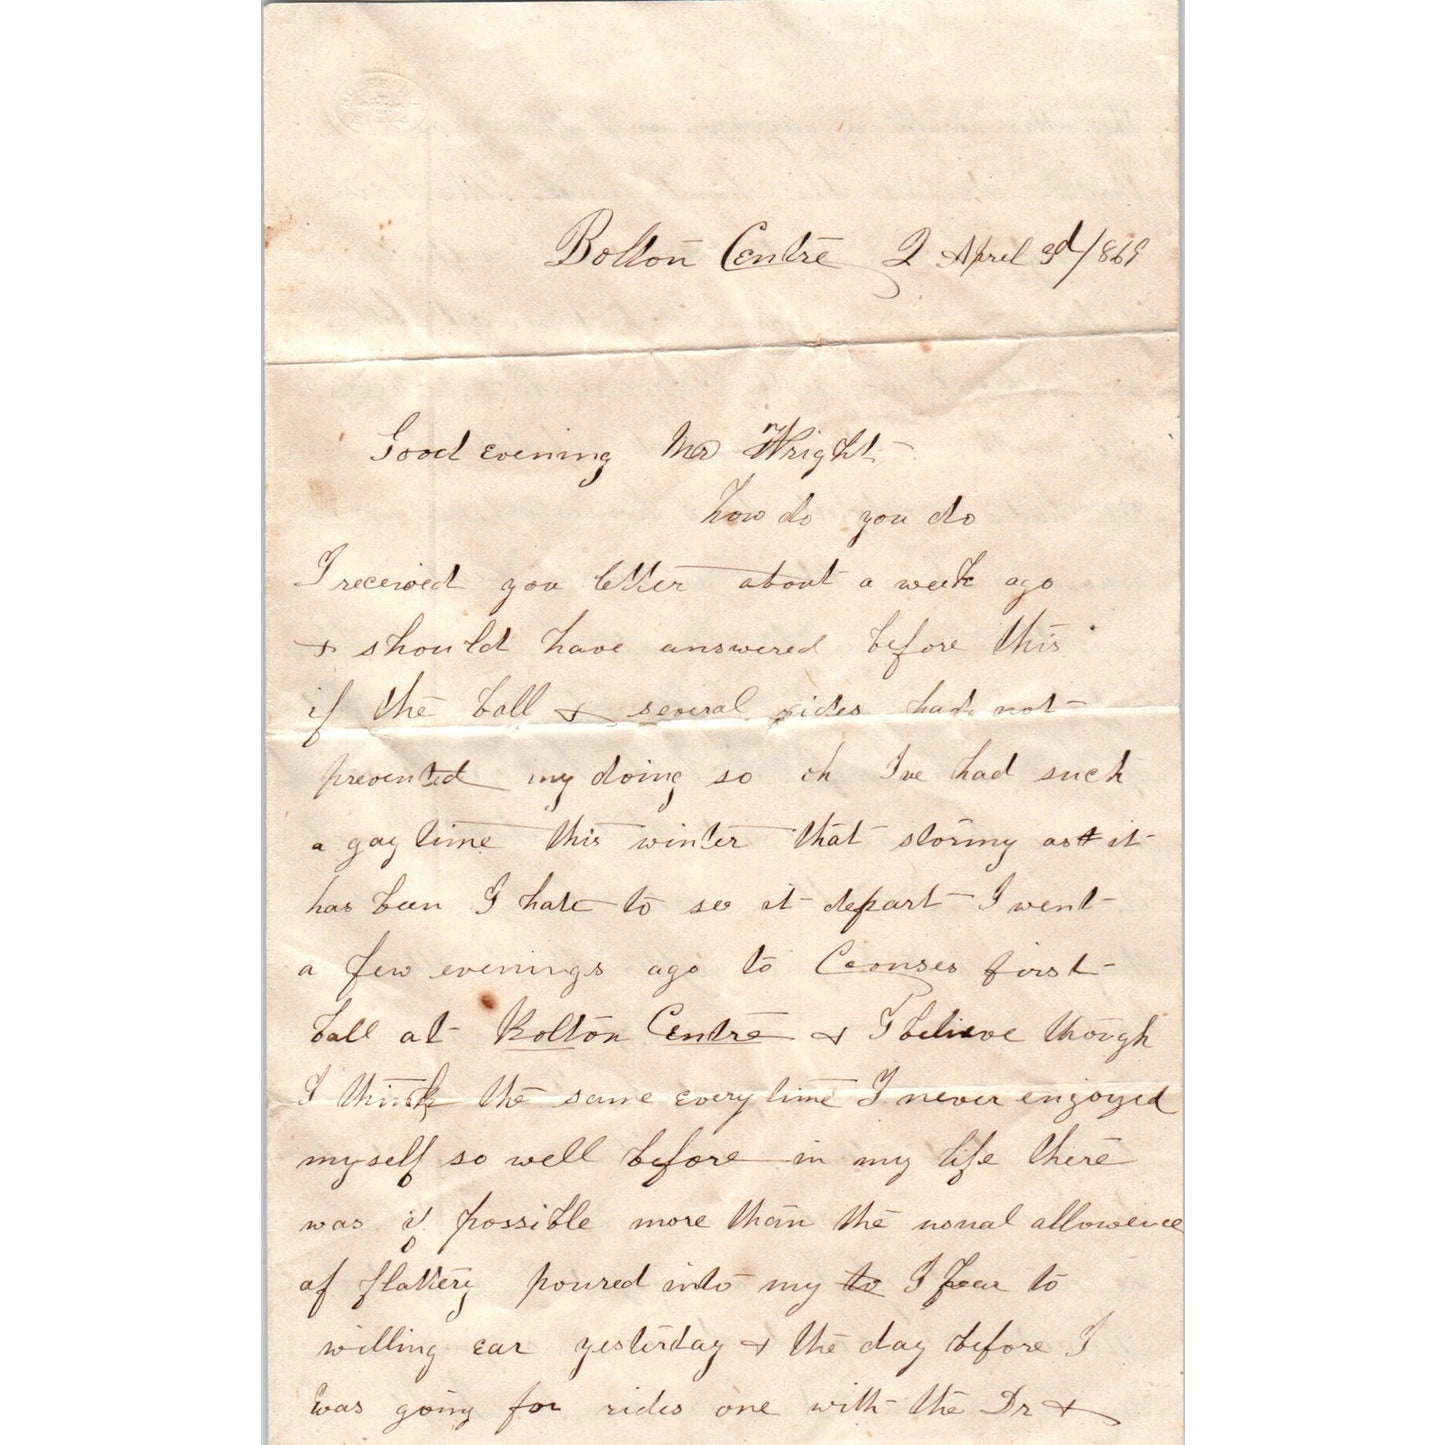 Bolton Centre Q April 3d/1869
Good evening Mr Wright
how do you do
I received you letter about a week ago
& should have answered before this
if the ball & several rides had not
prevented my doing so oh Ive had such
a gay time this winter that stormy as it
has been I hate to see it depart I went
a few evenings ago to first
ball at Bolton Centre & I believe though
I think the same every time I never enjoyed
myself so well before in my life there
was if possible more than the usual allowence
of flattery poured into my to I fear to
willing ear yesterday & the day before I
was going for rides one with the Dr &